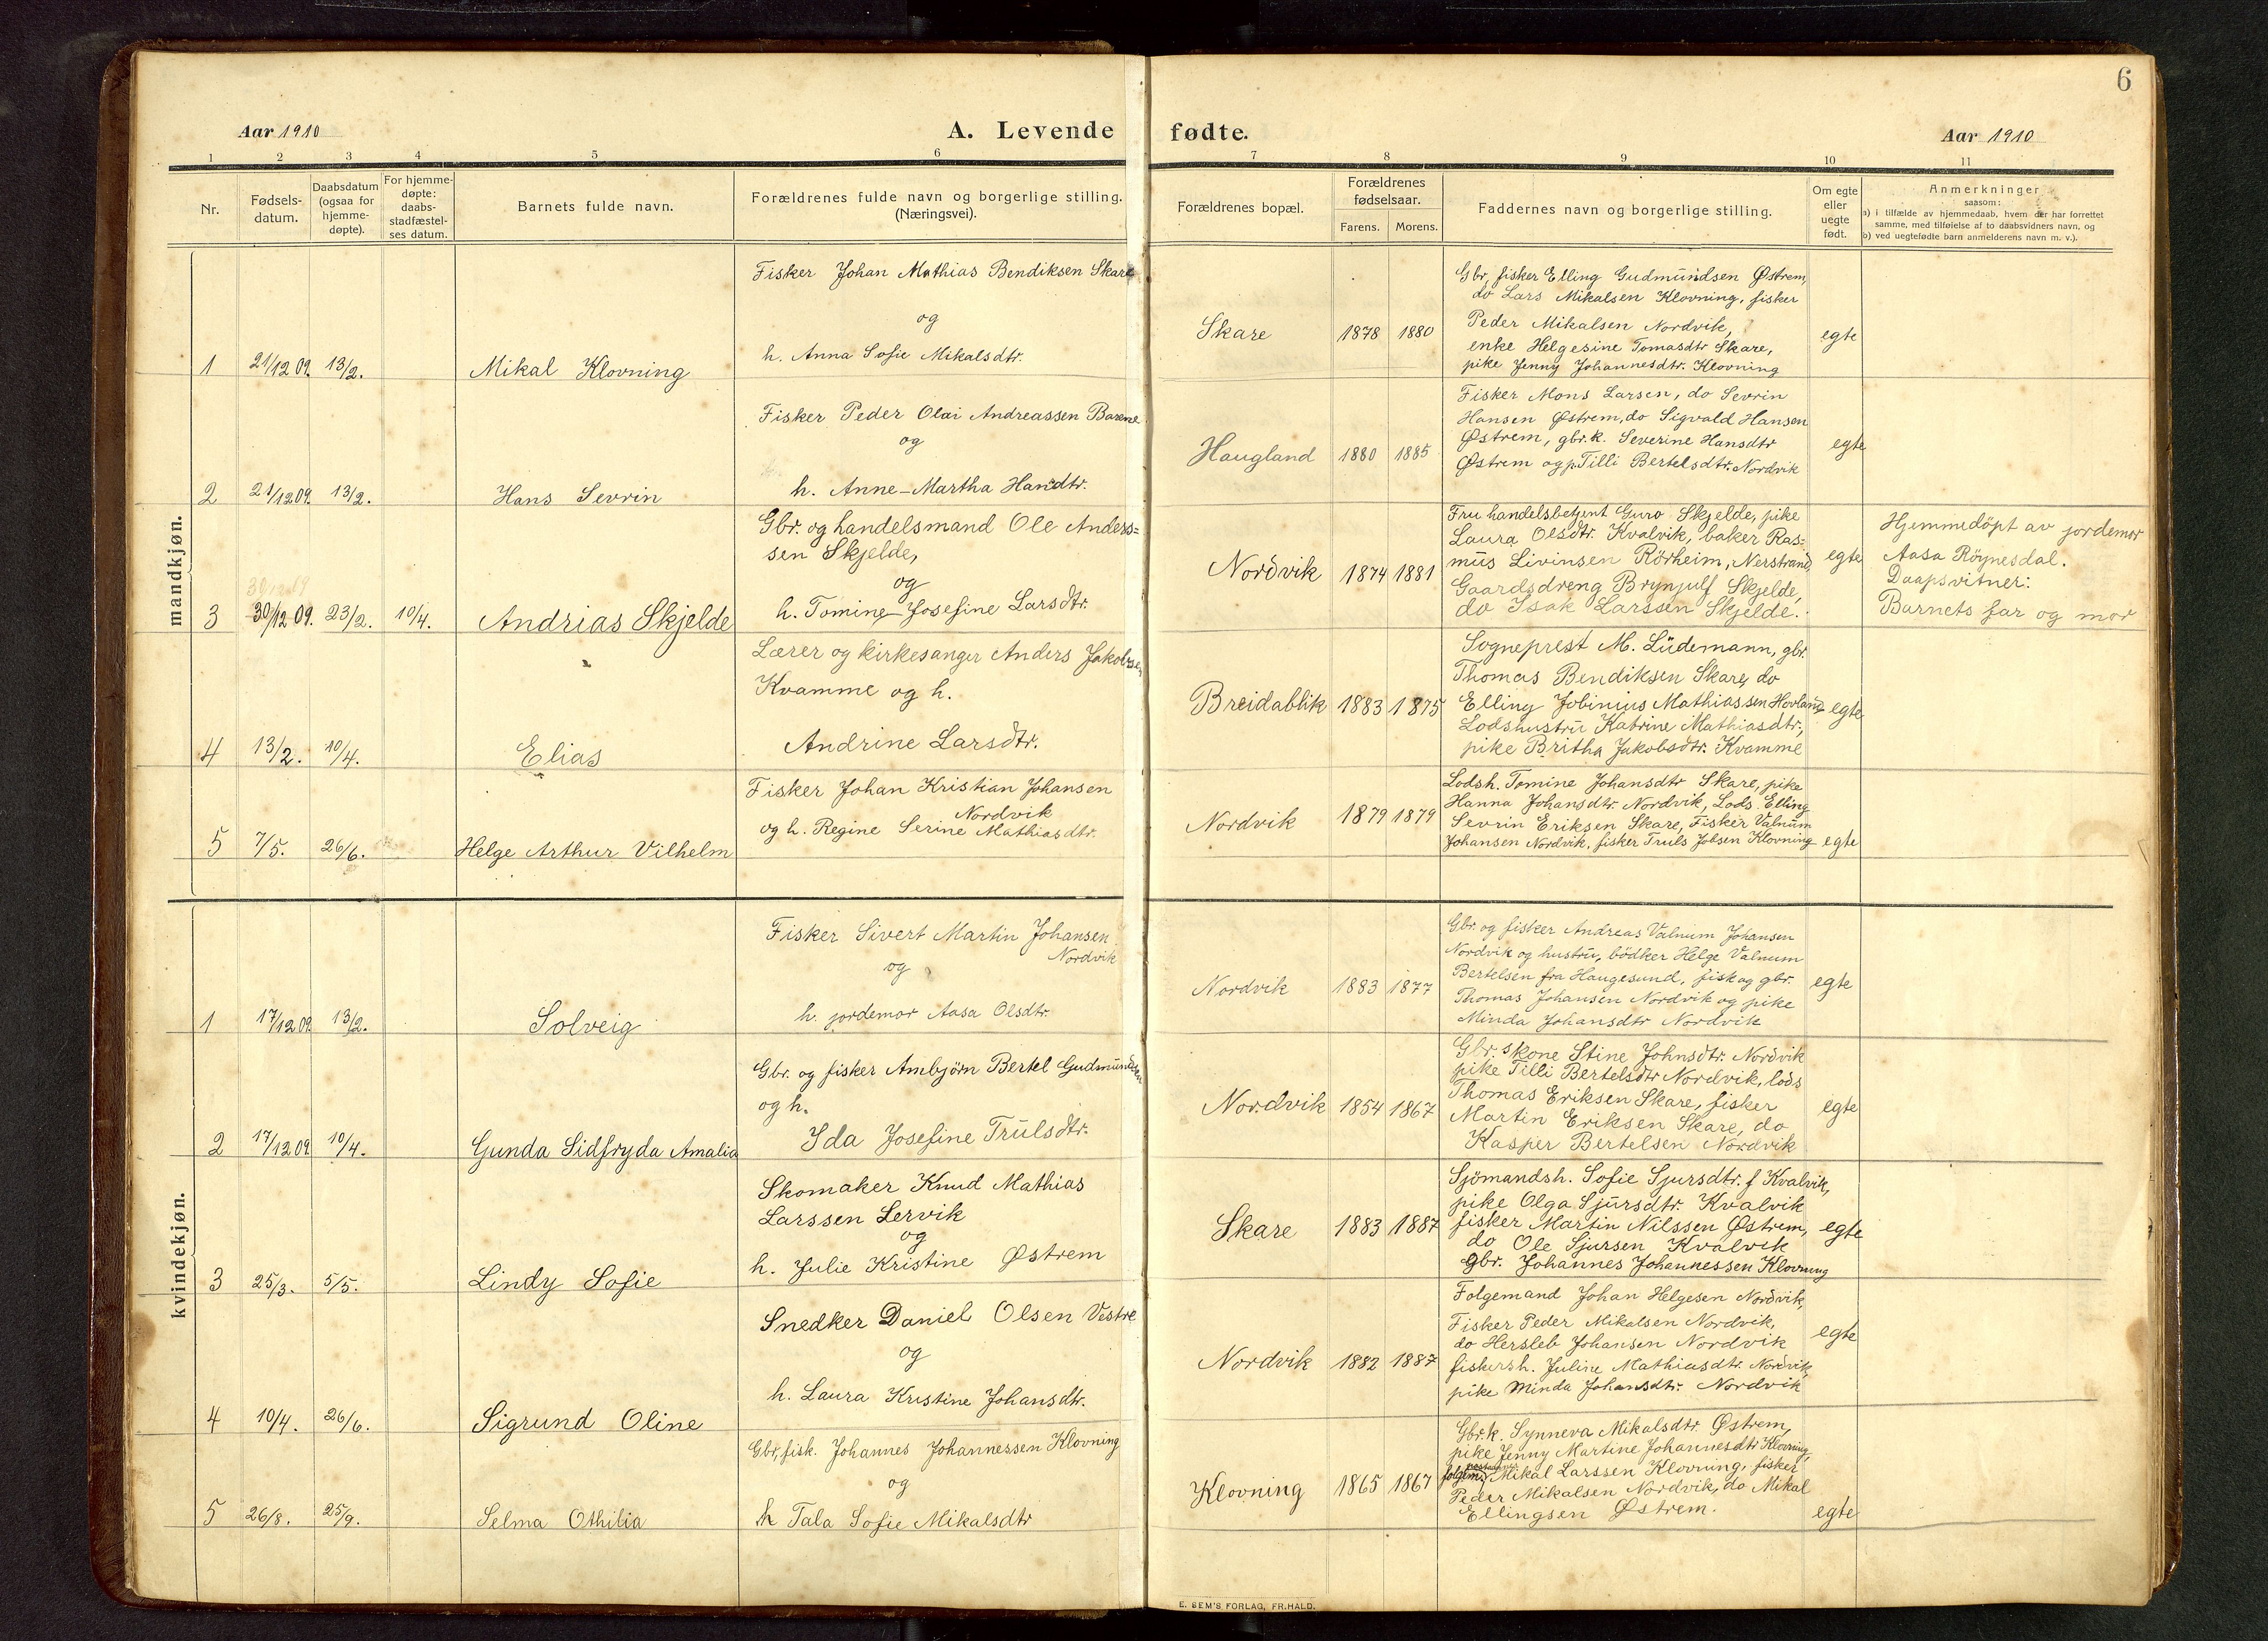 6
Aar 1910
A. Levende fødte.
Aar 1910
1 2 3 4 5 6 7 8 9 10 11
Nr.
Fødsels-
datum.
Daabsdatum
(ogsaa for
hjemme-
døpte).
For hjemme-
døpte:
daabs-
stadfæstel-
ses datum.
Barnets fulde navn.
Forældrenes fulde navn og borgerlige stilling.
(Næringsvei).
Forældrenes bopæl.
Forældrenes
fødselsaar.
Farens. Morens.
Faddernes navn og borgerlige stilling.
Om egte
eller
uegte
født.
Anmerkninger
saasom:
a) i tilfælde av hjemmedaab, hvem der har forrettet
samme, med tilføielse af to daabsvidners navn, og
b) ved uegtefødte barn anmelderens navn m. v.).
mandkjøn.
1 21/12 09. 13/2. Mikal Klovning
Fisker Johan Mathias Bendiksen Skare
og
h. Anna Sofie Mikalsdtr.
Skare 1878 1880
Gbr. fisker Elling Gudmundsen Østrem,
do Lars Mikalsen Klovning, fisker
Peder Mikalsen Nordvik,
enke Helgesine Tomasdtr Skare,
pike Jenny Johannesdtr. Klovning
egte
2 21/12 09. 13/2. Hans Sevrin
Fisker Peder Olai Andreassen
og
h. Anne-Martha Handtr.
Haugland 1880 1885
Fisker Mons Larsen, do Sevrin
Hansen Østrem, do Sigvald Hansen
Østrem, gbr. k. Severine Hansdtr
Østrem og p Tilli Bertelsdtr. Nordvik
egte
3 30/12 09. 23/2. 10/4. Andrias Skjelde
Gbr. og handelsmand Ole Anders=
sen Skjelde,
og
h. Tomine-Josefine Larsdtr.
Nordvik 1874 1881
Fru handelsbetjent Guro Skjelde, pike
Laura Olsdtr. Kvalvik, baker Ras=
mus Livinsen Rörheim, Nerstrand
Gaardsdreng Brynjulf Skjelde,
do Isak Larssen Skjelde.
egte
Hjemmedöpt av jordemor
Aasa Röynesdal.
Daapsvitner:
Barnets far og mor
4 13/2. 10/4. Elias
Lærer og kirkesanger Anders Jakobsen
Kvamme og h.
Andrine Larsdtr.
Breidablik 1883 1875
Sogneprest M. Lüdemann, gbr.
Thomas Bendiksen Skare, do
Elling Jobinius Mathiassen Hovland
Lodshustru Katrine Mathiasdtr,
pike Britha Jakobsdtr. Kvamme
egte
5 7/5. 26/6. Helge Arthur Vilhelm
Fisker Johan Kristian Johansen
Nordvik
og h. Regine Serine Mathiasdtr.
Nordvik 1879 1879
Lodsh. Tomine Johansdtr Skare, pike
Hanna Johansdtr. Nordvik, Lods. Elling
Sevrin Eriksen Skare, Fisker Valnum
Johansen Nordvik, fisker Truls Jobsen Klovning
egte
kvindekjøn.
1 17/12 09 13/2. Solveig
Fisker Sivert Martin Johansen
Nordvik
og
h. jordemor Aasa Olsdtr.
Nordvik 1883 1877
Gbr. og fisker Andreas Valnum Johansen
Nordvik og hustru, bödker Helge Valnum
Bertelsen fra Haugesund, fisk og gbr.
Thomas Johansen Nordvik og pike
Minda Johansdtr Nordvik
egte
2 17/12 09 10/4. Gunda Sidfryda Amalia
Gbr. og fisker Ambjörn Bertel Gudmundsen
og h.
Ida Josefine Trulsdtr.
Nordvik 1854 1867
Gbr. skone Stine Johnsdtr. Nordvik
pike Tilli Bertelsdtr Nordvik, lods
Thomas Eriksen Skare, fisker
Martin Eriksen Skare, do
Kasper Bertelsen Nordvik
egte
3 25/3. 5/5. Lindy Sofie
Skomaker Knud Mathias
Larssen Lervik
og
h. Julie Kristine Østrem
Skare 1883 1887
Sjömandsh. Sofie Sjursdtr. f Kvalvik,
pike Olga Sjursdtr. Kvalvik
fisker Martin Nilssen Østrem,
do Ole Sjursen Kvalvik
gbr. Johannes Johannessen Klovning
egte
4 10/4. 26/6. Sigrund Oline
Snedker Daniel Olsen Vestre
og
h. Laura Kristine Johansdtr.
Nordvik 1882 1887
Folgemand Johan Helgesen Nordvik,
Fisker Peder Mikalsen Nordvik,
do Hersleb Johansen Nordvik
fiskersh. Juline Mathiasdtr. Nordvik,
pike Minda Johansdtr. Nordvik
egte
5 26/8. 25/9. Selma Othilia
Gbr, fisk. Johannes Johannessen Klovning
og
h Tala Sofie Mikalsdtr
Klovning 1865 1867
Gbr. k. Synneva Mikalsdtr. Østrem,
pike Jenny Martine Johannesdtr Klovning,
folgem. Mikal Larssen Klovning, fisker
Peder Mikalsen Nordvik, do Mikal
Ellingsen Østrem.
egte
E. SEM'S FORLAG, FR.HALD.